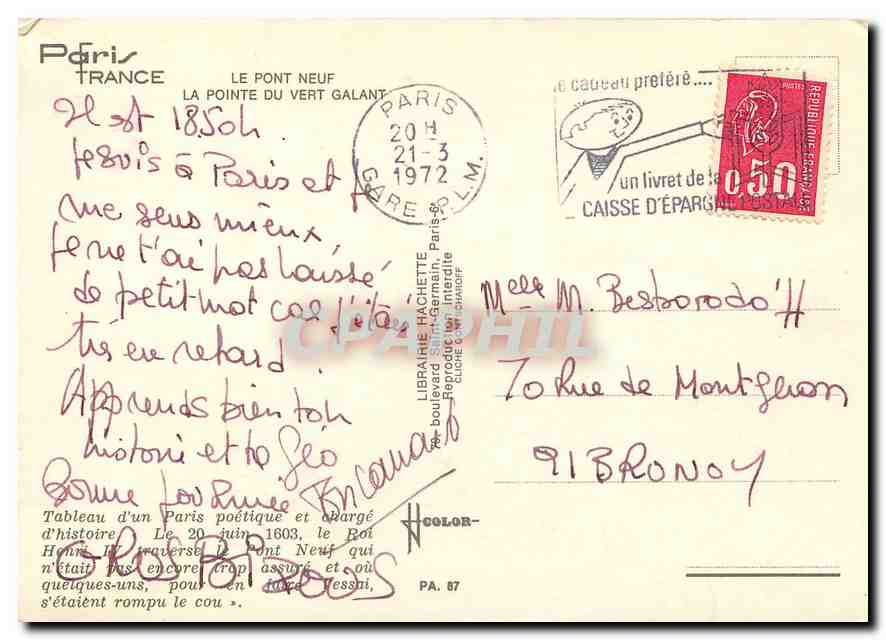 Paris
FRANCE
LE PONT NEUF
LA POINTE DU VERT GALANT
Il est 18.50h.
Je suis à Paris et je
me sens mieux,
Je ne t'ai pas laissé
de petit mot car j'étais
très en retard.
Apprends bien ton
histoire et ta géo
Bonne journée
GROS BIZOUS
Tableau d'un Paris poétique et chargé
d'histoire. Le 20 juin 1603, le Roi
Henri IV traverse le Pont Neuf qui
n'était pas encore trop assuré et où
quelques-uns, pour en faire l'essai,
s'étaient rompu le cou ».
PARIS
20 H
21-3
1972
GARE P.L.M.
le cadeau préféré....
un livret de la
CAISSE D'ÉPARGNE POSTALE
POSTES
REPUBLIQUE FRANÇAISE
0,50
LIBRAIRIE HACHETTE
79, boulevard Saint-Germain, Paris-6e
Reproduction Interdite
CLICHÉ GONTSCHAROFF
CPAPHIL
COLOR
PA. 87
Melle M. Besborodo'H
70 Rue de Montgeron
91 BRUNOY